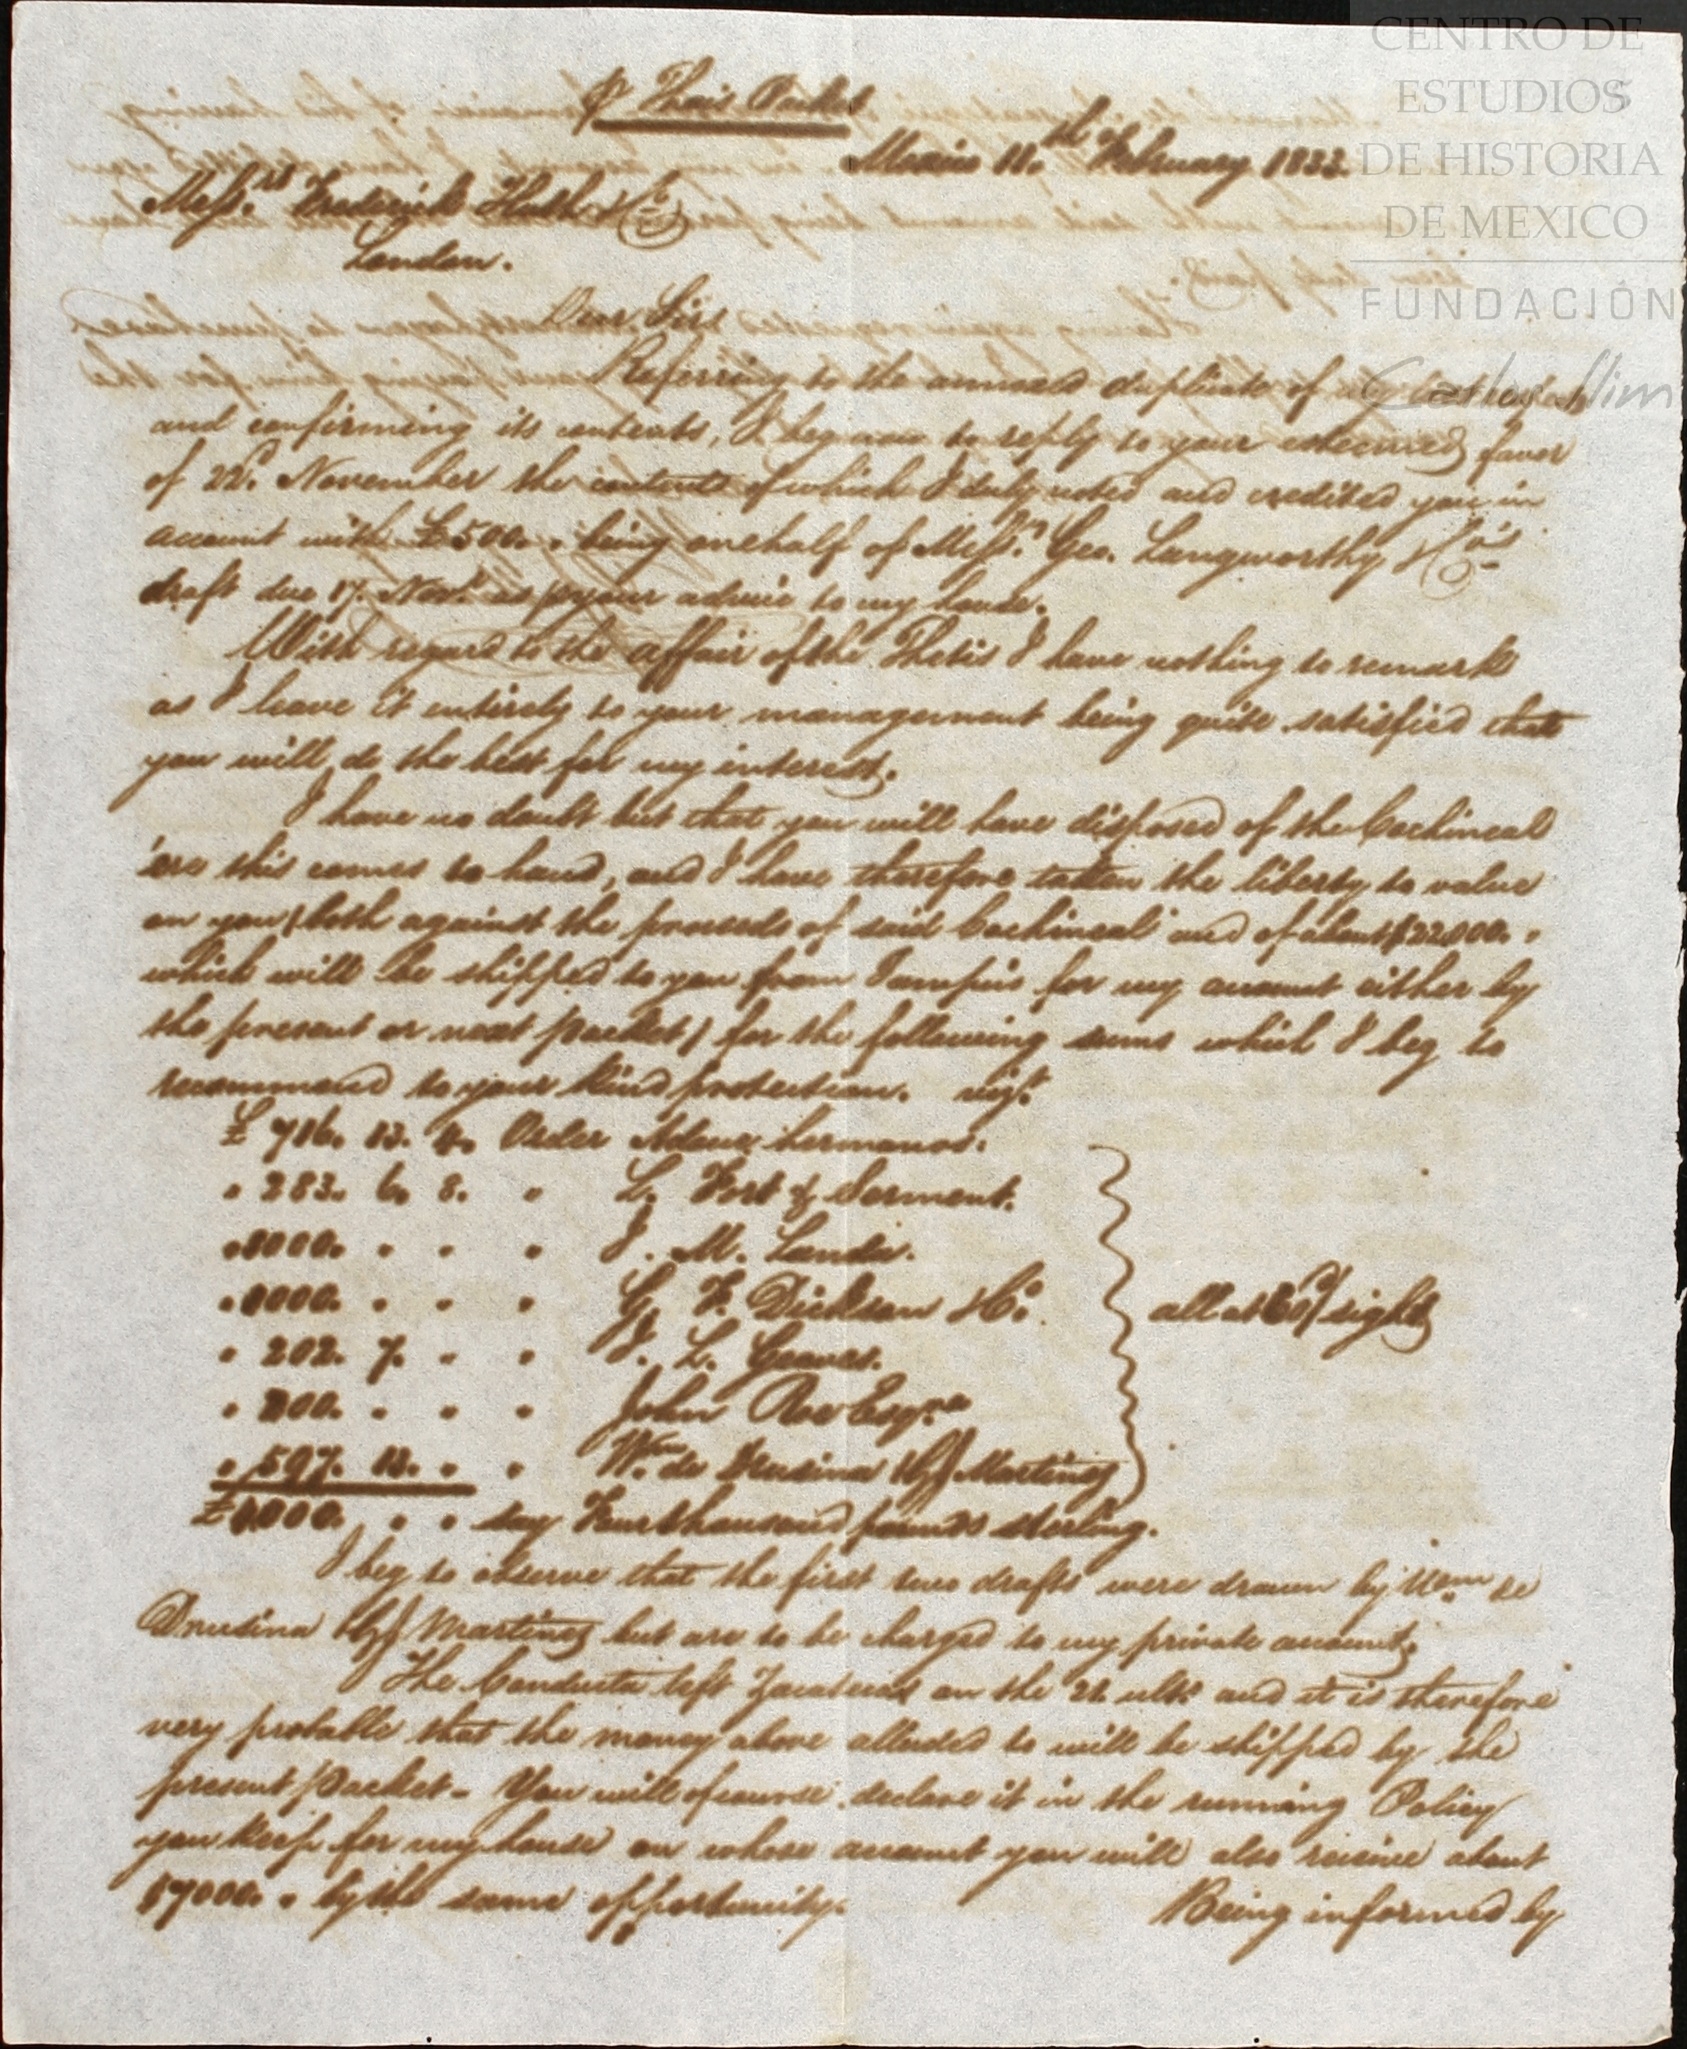 CENTRO DE
ESTUDIOS
DE HISTORIA
DE MEXICO
FUNDACIÓN
Carlos Slim
p Thais Packet
Mexico 11.th February 1832.
Mess.rs Frederick Huth & Co
London.
Dear Sirs
Referring to the annexed duplicate of my last
and confirming its contents, I beg now to reply to your esteemed favor
of 22d. November the contents of which I duly noted and credited you in
account with £500. . being onehalf of Mess.rs Geo. Langworthy & Co's
draft due 17. Novr. as p your advice to my house.
With regard to the affair of the Thetis I have nothing to remark
as I leave it entirely to your management being quite satisfied that
you will do the best for my interest.
I have no doubt but that you will have disposed of the Cochineal
'ere this comes to hand, and I have therefore taken the liberty to value
on you (both against the proceeds of said Cochineal and of about $22000. .
which will be shipped to you from Tampico for my account either by
the present or next packet) for the following sums which I beg to
recommend to your kind protection. vizt.
£ 716. 13. 4. Order Adoue hermanos.
" 283. 6. 8. " L. Fort & Sorment.
" 1000. " " " J. M. Landa.
" 1000. " " " G. F. Dickson & Co.
" 202. 7. " " J. L. Graves.
" 200. " " " John Roe Esqre
" 597. 13. " " Wm. de Drusina & Martinez
all at 60 d/ sight
£4000. " " say Fourthousand pounds sterling.
I beg to observe that the first two drafts were drawn by Wm. de
Drusina & Martinez but are to be charged to my private account.
The Conducta left Zacatecas on the 21 ulto and it is therefore
very probable that the money above alluded to will be shipped by the
present packet - You will of course declare it in the running Policy
you keep for my house on whose account you will also receive about
$7000. . by the same opportunity.
Being informed by